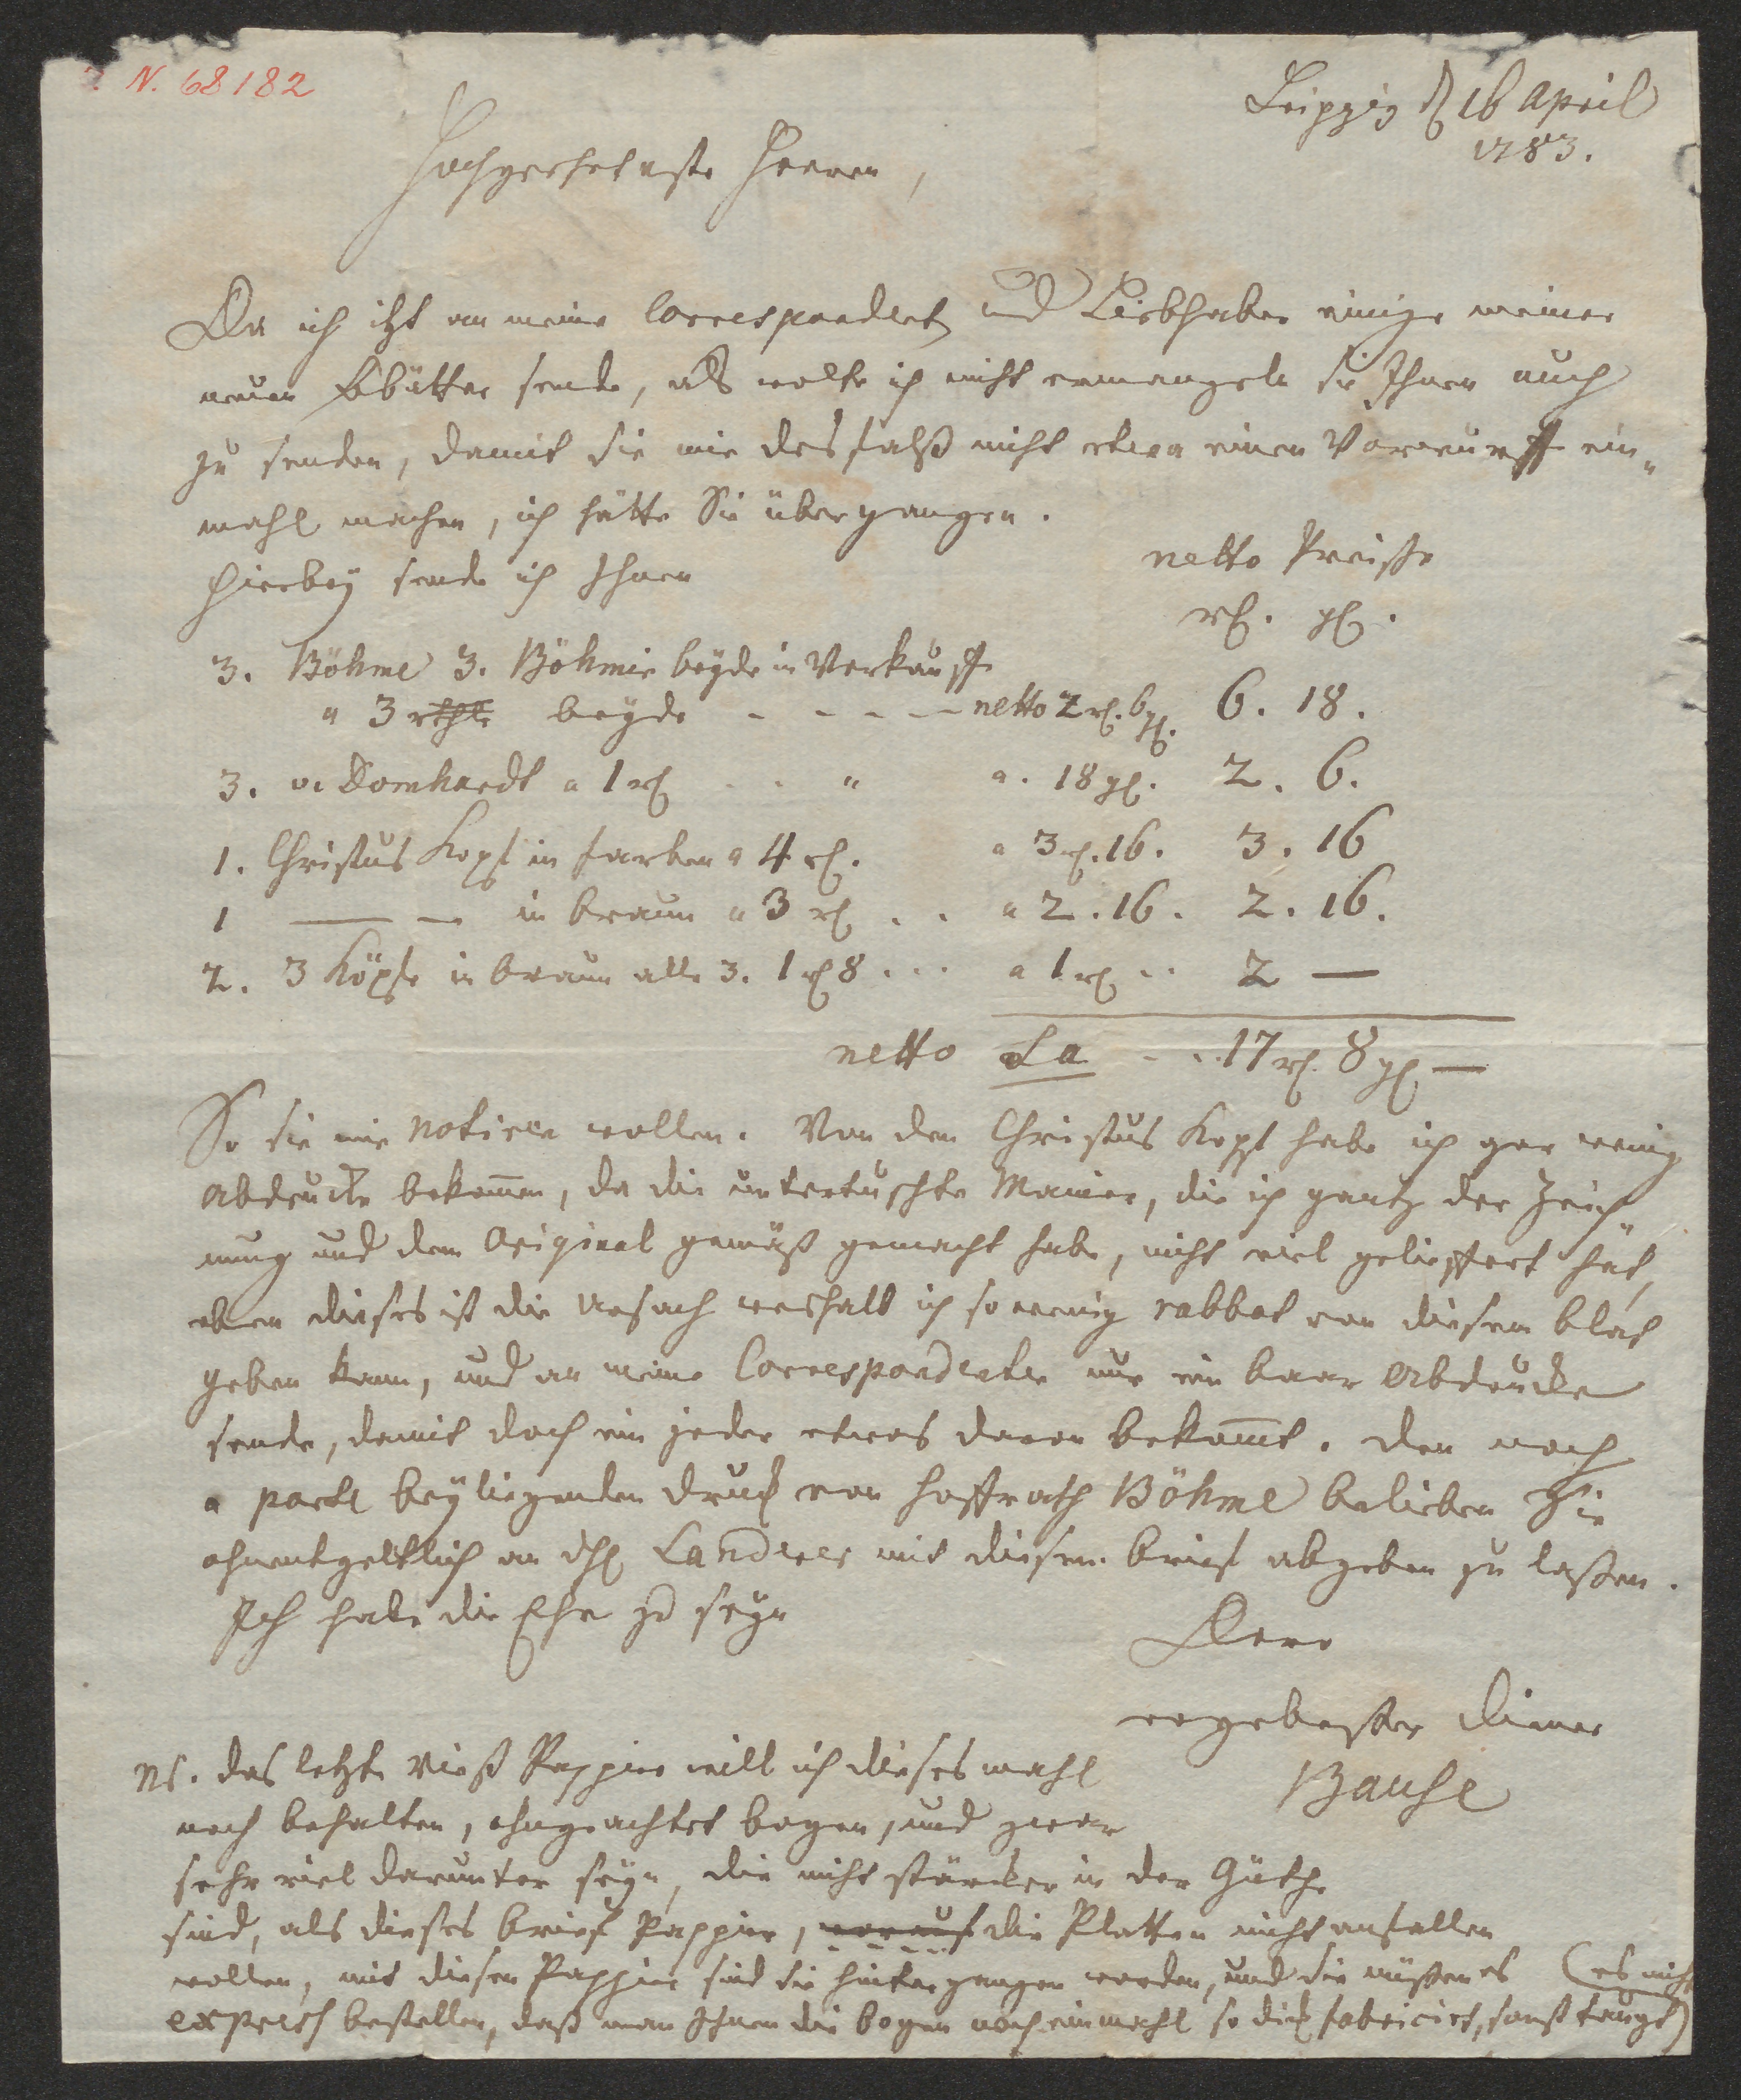 N. 68182
Leipzig d 16 April
1783.
Hochgeehrteste Herren,
Da ich itzt an meine Correspondent und Liebhaber einige meiner
neuen Blätter sende, als wolte ich nicht ermangeln sie Ihnen auch
zu senden, damit sie mir desfalß nicht etwa einen Vorwurff ein„
mahl machen, ich hätte Sie übergangen.
Hierbey sende ich Ihnen
netto Preiße
rl. gl.
3. Böhme 3. Böhmin beyde in Verkauff
a 3 rthlr beyde - - - - netto 2 rl. 6 gl. 6. 18.
3. v. Domhardt a 1 rl - - " a. 18 gl. 2. 6.
1. Christus Kopf in farben a 4 rl. a 3 rl. 16. 3. 16
1 — — in braun a 3 rl . . a 2. 16. 2. 16.
2. 3 Köpfe in braun alle 3. 1 rl 8 ... a 1 rl .. 2 —
netto La - - 17 rl. 8 gl —
So sie mir notiren wollen. Von den Christus Kopf habe ich gar wenig
Abdrucke bekomen, da die untertuschte Manier, die ich gantz der Zeich„
nung und dem Original gemäß gemacht habe, nicht viel geliffert hat,
eben dieses ist die Ursach weshalb ich so wenig rabbat von diesem blat
geben kann, und an meine Correspondenten nur ein baar Abdrucke
sende, damit doch ein jeder etwas davon bekomt. Den noch
a parte beyliegenden Druck von Hoffrath Böhme belieben Sie
ohnentgeltlich an HE Landerer mit diesem brief abgeben zu laßen.
Ich habe die Ehre zu seyn
Dero
ergebenster Diener
Bause
NS. das letzte Rieß Pappier will ich dieses mahl
noch behalten, ohngeachtet bogen, und zwar
sehr viel darunter seyn, die nicht stärcker in der Güthe
sind, als dieses brief Pappier, worauf die Platten nicht ausfallen
wollen, mit diesen Pappier sind sie hintergangen worden, und sie müßen es
expreß bestellen, daß man Ihnen die bogen noch einmahl so dick fabricirt, sonst taugt
(es nicht